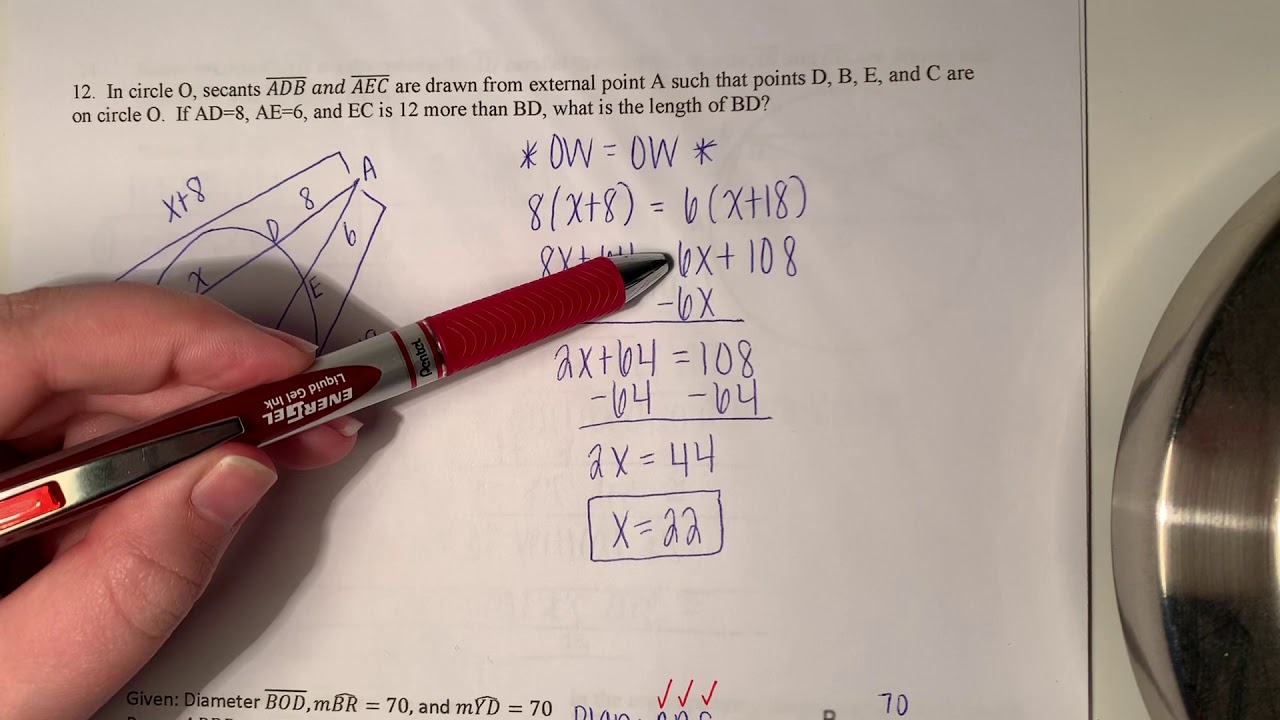 12. In circle O, secants ADB and AEC are drawn from external point A such that points D, B, E, and C are
on circle O. If AD=8, AE=6, and EC is 12 more than BD, what is the length of BD?
* OW = OW *
x+8
8
A
D
6
x
E
8(x+8) = 6(x+18)
6x+108
-6x
2x+64 = 108
-64 -64
2x = 44
x = 22
Pentel
ENERGEL
Liquid Gel Ink
Given: Diameter BOD, mBR = 70, and mYD = 70
70